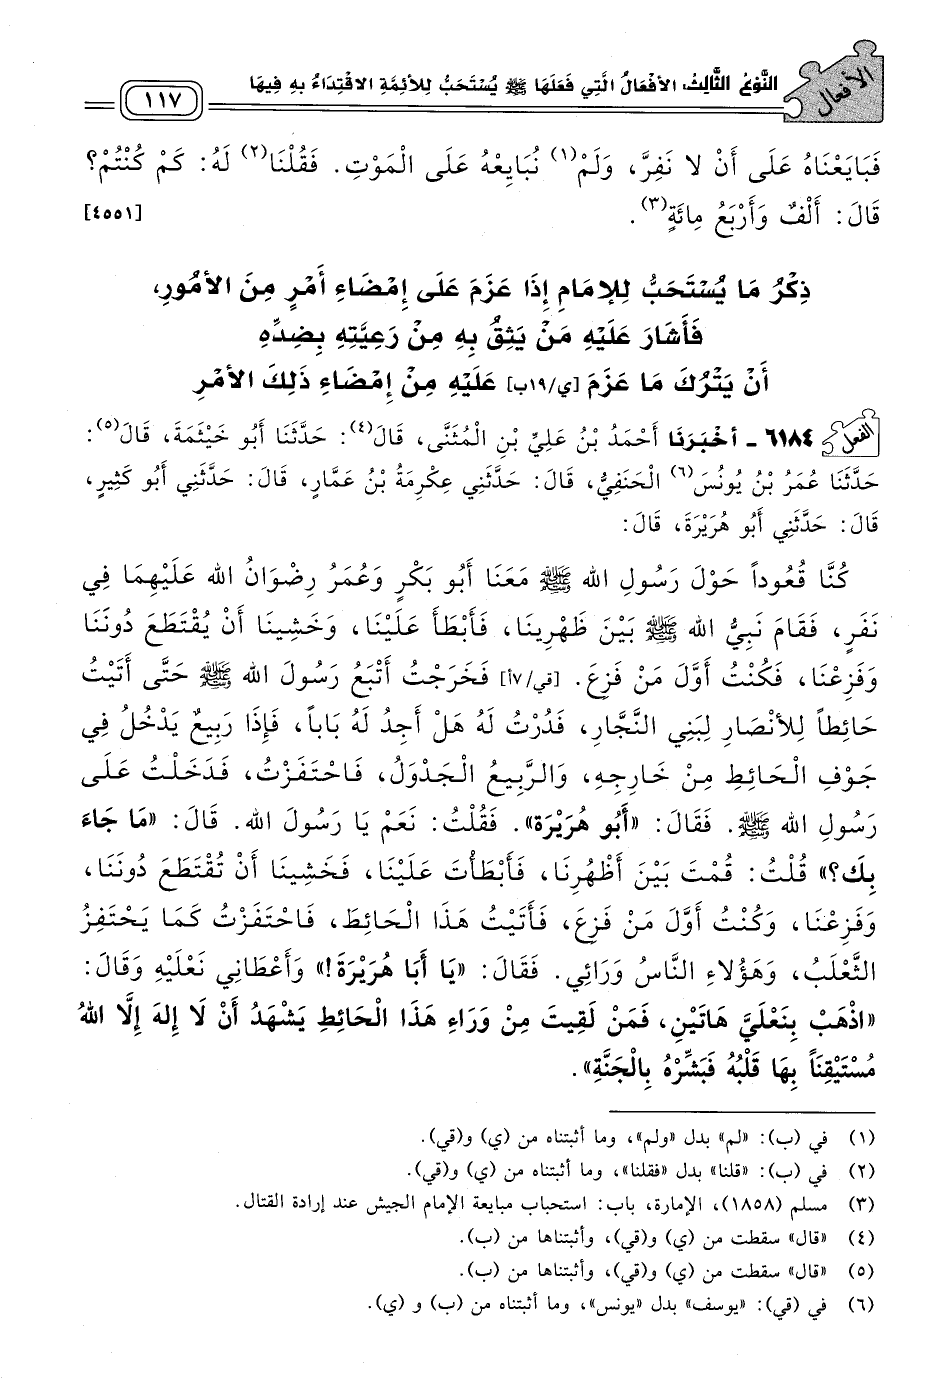 الأفعال
النَّوْعُ الثَّالِثُ: الأَفْعَالُ الَّتِي فَعَلَهَا ﷺ يُسْتَحَبُّ لِلأَئِمَّةِ الاقْتِدَاءُ بِهِ فِيهَا
١١٧
فَبَايَعْنَاهُ عَلَى أَنْ لا نَفِرَّ، وَلَمْ(١) نُبَايِعْهُ عَلَى الْمَوْتِ. فَقُلْنَا(٢) لَهُ: كَمْ كُنْتُمْ؟
قَالَ: أَلْفٌ وَأَرْبَعُ مِائَةٍ(٣). [٤٥٥١]
ذِكْرُ مَا يُسْتَحَبُّ لِلإمَامِ إِذَا عَزَمَ عَلَى إِمْضَاءِ أَمْرٍ مِنَ الأمُورِ،
فَأَشَارَ عَلَيْهِ مَنْ يَثِقُ بِهِ مِنْ رَعِيَّتِهِ بِضِدِّهِ
أَنْ يَتْرُكَ مَا عَزَمَ [ي/١٩ب] عَلَيْهِ مِنْ إِمْضَاءِ ذَلِكَ الأمْرِ
الفعل ٦١٨٤ - أخْبَرَنَا أَحْمَدُ بْنُ عَلِيِّ بْنِ الْمُثَنَّى، قَالَ(٤): حَدَّثَنَا أَبُو خَيْثَمَةَ، قَالَ(٥):
حَدَّثَنَا عُمَرُ بْنُ يُونُسَ(٦) الْحَنَفِيُّ، قَالَ: حَدَّثَنِي عِكْرِمَةُ بْنُ عَمَّارٍ، قَالَ: حَدَّثَنِي أَبُو كَثِيرٍ،
قَالَ: حَدَّثَنِي أَبُو هُرَيْرَةَ، قَالَ:
كُنَّا قُعُوداً حَوْلَ رَسُولِ الله ﷺ مَعَنَا أَبُو بَكْرٍ وَعُمَرُ رِضْوَانُ الله عَلَيْهِمَا فِي
نَفَرٍ، فَقَامَ نَبِيُّ الله ﷺ بَيْنَ ظَهْرِينَا، فَأَبْطَأَ عَلَيْنَا، وَخَشِينَا أَنْ يُقْتَطَعَ دُونَنَا
وَفَزِعْنَا، فَكُنْتُ أَوَّلَ مَنْ فَزِعَ. [قي/٧أ] فَخَرَجْتُ أَتْبَعُ رَسُولَ الله ﷺ حَتَّى أَتَيْتُ
حَائِطاً لِلأَنْصَارِ لِبَنِي النَّجَّارِ، فَدُرْتُ لَهُ هَلْ أَجِدُ لَهُ بَاباً، فَإِذَا رَبِيعٌ يَدْخُلُ فِي
جَوْفِ الْحَائِطِ مِنْ خَارِجِهِ، وَالرَّبِيعُ الْجَدْوَلُ، فَاحْتَفَزْتُ، فَدَخَلْتُ عَلَى
رَسُولِ الله ﷺ. فَقَالَ: «أَبُو هُرَيْرَة». فَقُلْتُ: نَعَمْ يَا رَسُولَ الله. قَالَ: «مَا جَاءَ
بِكَ؟» قُلْتُ: قُمْتَ بَيْنَ أَظْهُرِنَا، فَأَبْطَأْتَ عَلَيْنَا، فَخَشِينَا أَنْ تُقْتَطَعَ دُونَنَا،
وَفَزِعْنَا، وَكُنْتُ أَوَّلَ مَنْ فَزِعَ، فَأَتَيْتُ هَذَا الْحَائِطَ، فَاحْتَفَزْتُ كَمَا يَحْتَفِزُ
الثَّعْلَبُ، وَهَؤُلاءِ النَّاسُ وَرَائِي. فَقَالَ: «يَا أَبَا هُرَيْرَةَ!» وَأَعْطَانِي نَعْلَيْهِ وَقَالَ:
«اذْهَبْ بِنَعْلَيَّ هَاتَيْنِ، فَمَنْ لَقِيتَ مِنْ وَرَاءِ هَذَا الْحَائِطِ يَشْهَدُ أَنْ لَا إِلهَ إِلَّا اللهُ
مُسْتَيْقِنَاً بِهَا قَلْبُهُ فَبَشِّرْهُ بِالْجَنَّةِ».
(١) في (ب): «لم» بدل «ولم»، وما أثبتناه من (ي) و(قي).
(٢) في (ب): «قلنا» بدل «فقلنا»، وما أثبتناه من (ي) و(قي).
(٣) مسلم (١٨٥٨)، الإمارة، باب: استحباب مبايعة الإمام الجيش عند إرادة القتال.
(٤) «قال» سقطت من (ي) و(قي)، وأثبتناها من (ب).
(٥) «قال» سقطت من (ي) و(قي)، وأثبتناها من (ب).
(٦) في (قي): «يوسف» بدل «يونس»، وما أثبتناه من (ب) و (ي).